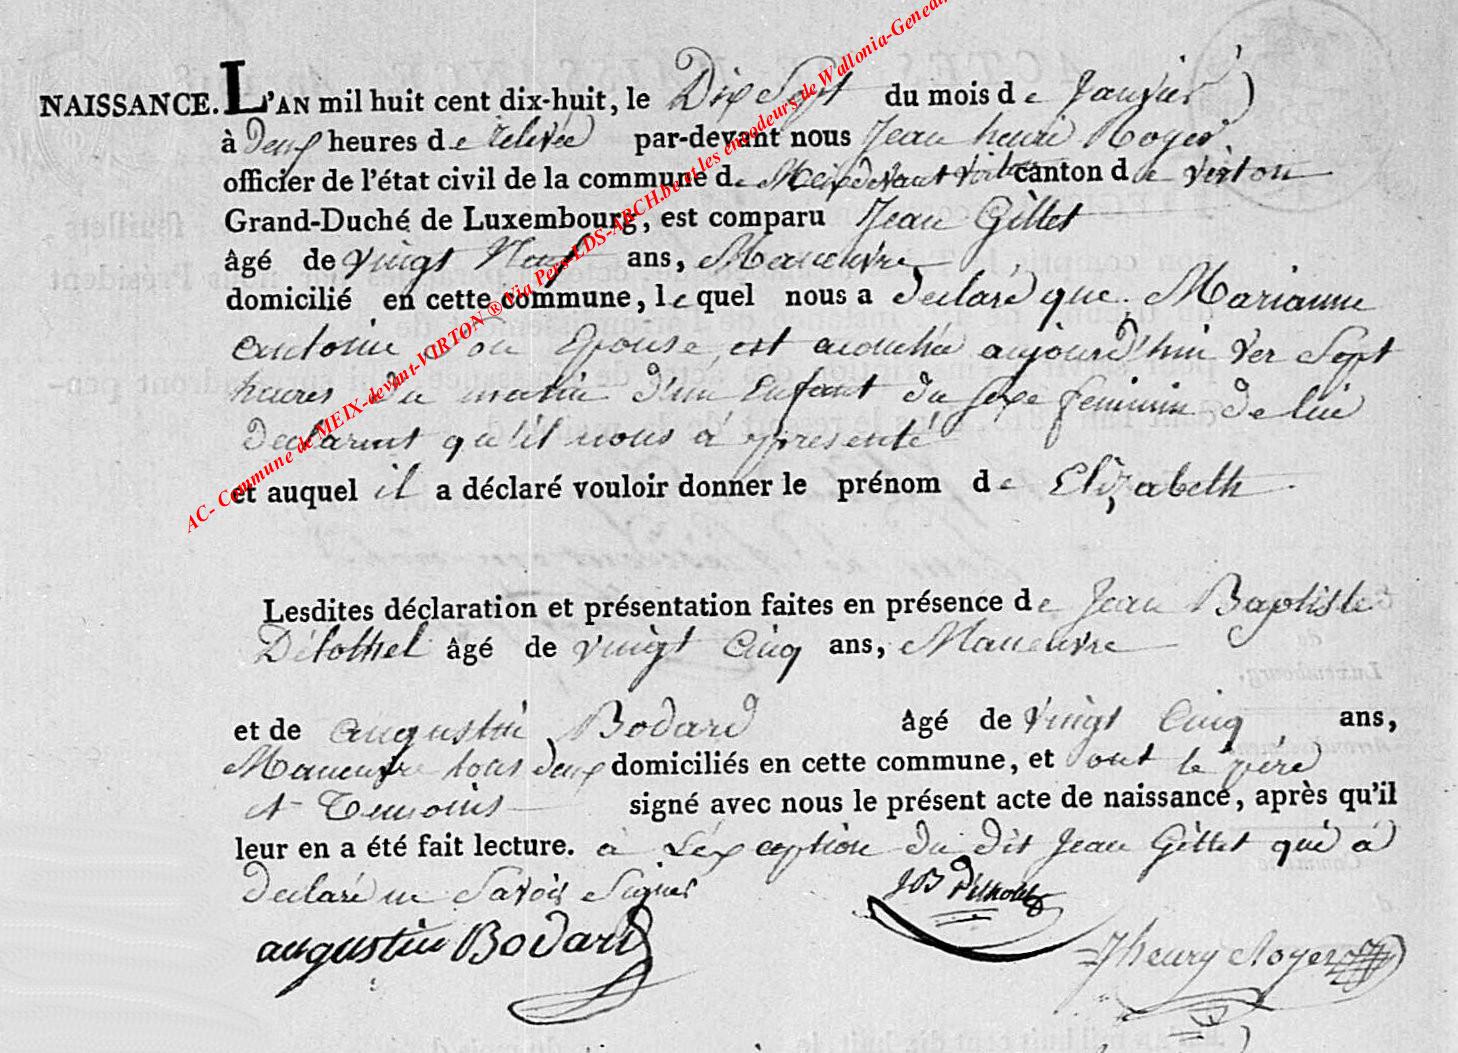 NAISSANCE. L'AN mil huit cent dix-huit, le Dix Sept du mois de Janvier
à Deux heures de relevée par-devant nous Jean henri Royer
officier de l'état civil de la commune de Meix devant Virton canton de virton
Grand-Duché de Luxembourg, est comparu Jean Gillet
âgé de vingt Neuf ans, Maneuvre
domicilié en cette commune, lequel nous a declaré que Marianne
antoine son Epouse est acouchée aujourd'hui ver Sept
heures du matin d'un Enfant du sexe feminin de lui
Declarant qu'il nous a presenté
et auquel il a déclaré vouloir donner le prénom de Elizabeth
Lesdites déclaration et présentation faites en présence de Jean Baptiste
âgé de vingt Cinq ans, Maneuvre
et de augustin Bodard âgé de vingt Cinq ans,
Maneuvre tous deux domiciliés en cette commune, et ont le père
et Temoins signé avec nous le présent acte de naissance, après qu'il
leur en a été fait lecture. à L'exception du dit Jean Gillet qui a
Declaré ne Savoir Signer
JB
augustin Bodard
Jhenry Royer
AC- Commune de MEIX-devant-VIRTON ® Via Pers-LDS-ARCH.be et les encodeurs de Wallonia-Genealo